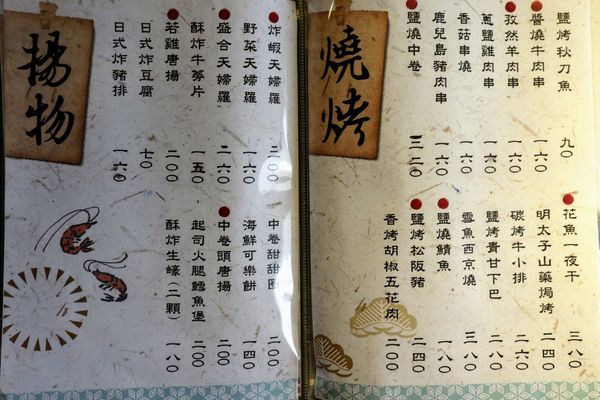 燒烤
鹽烤秋刀魚 九〇
醬燒牛肉串 一六〇
孜然羊肉串 一六〇
蔥鹽雞肉串 一六〇
香菇串燒 一六〇
鹿兒島豬肉串 一六〇
鹽燒中卷 三二〇
花魚一夜干 三八〇
明太子山藥焗烤 二四〇
碳烤牛小排 二六〇
鹽烤青甘下巴 二八〇
雪魚西京燒 二八〇
鹽燒鯖魚 一八〇
鹽烤松阪豬 二四〇
香烤胡椒五花肉 二〇〇
揚物
炸蝦天婦羅 二〇〇
野菜天婦羅 一六〇
盛合天婦羅 二六〇
酥炸牛蒡片 一五〇
若雞唐揚 二〇〇
日式炸豆腐 七〇
日式炸豬排 一六〇
中卷甜甜圈 二〇〇
海鮮可樂餅 一四〇
中卷頭唐揚 二〇〇
起司火腿鱈魚堡 二〇〇
酥炸生蠔(二顆) 一八〇